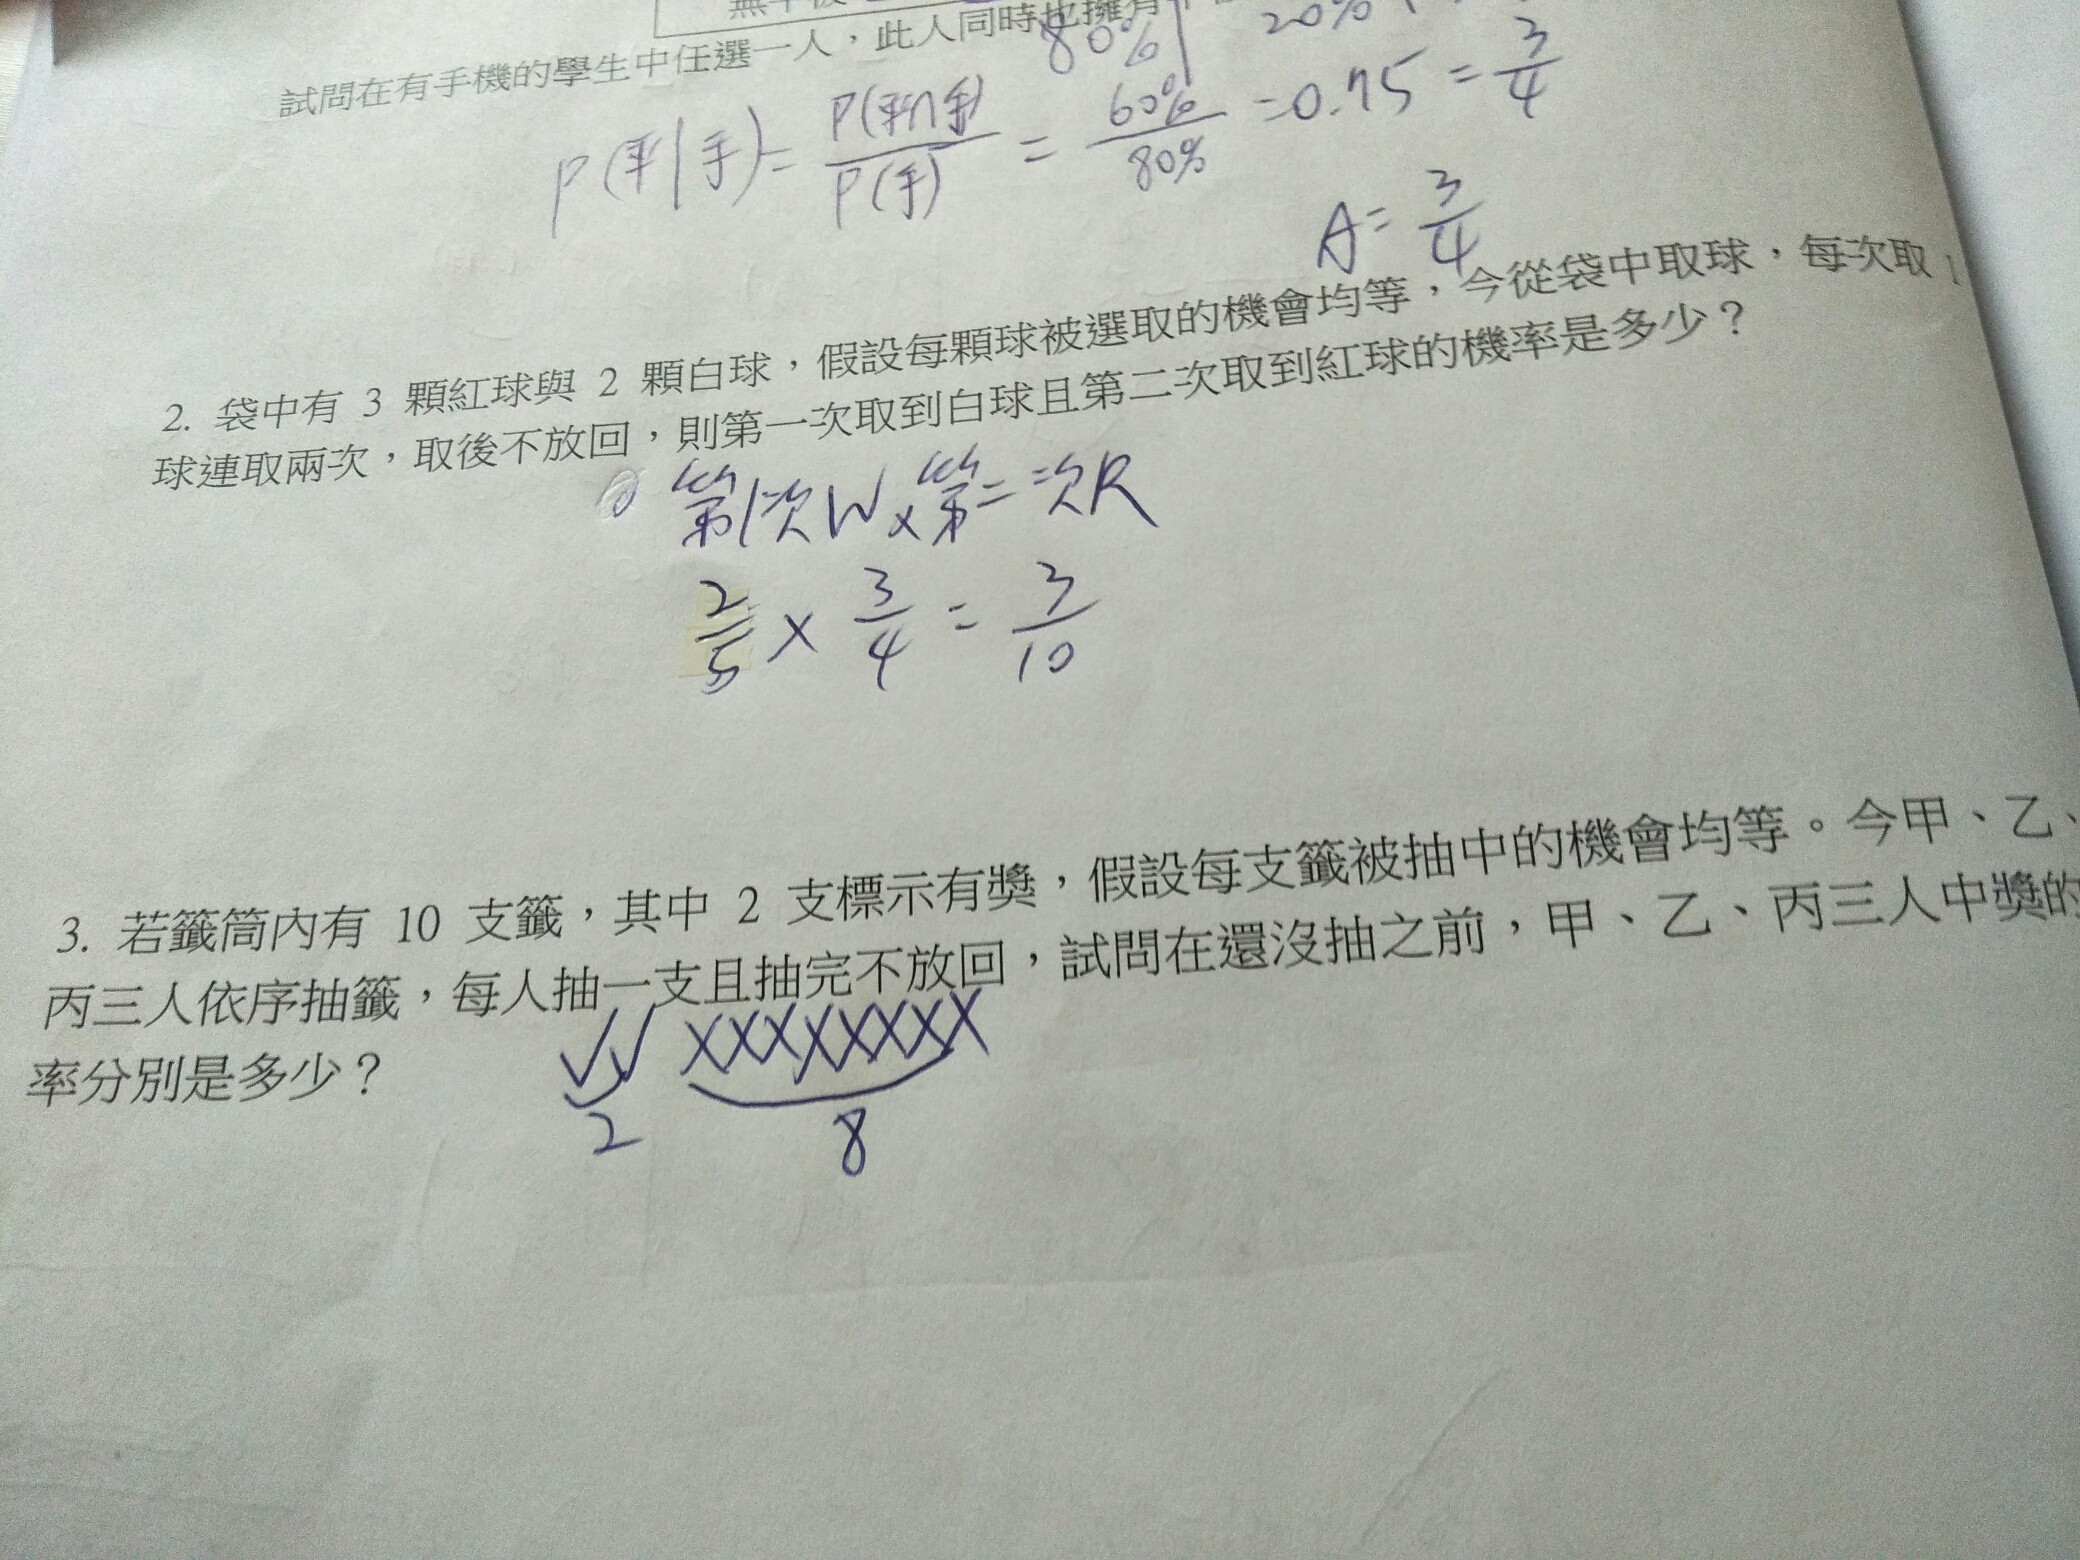 80% 20%
試問在有手機的學生中任選一人，此人同時也擁有
P(平|手)= P(平∩手)/P(手) = 60%/80% =0.75 = 3/4
A= 3/4
2. 袋中有 3 顆紅球與 2 顆白球，假設每顆球被選取的機會均等，今從袋中取球，每次取 1
球連取兩次，取後不放回，則第一次取到白球且第二次取到紅球的機率是多少？
第1次W x 第二次R
2/5 x 3/4 = 3/10
3. 若籤筒內有 10 支籤，其中 2 支標示有獎，假設每支籤被抽中的機會均等。今甲、乙、
丙三人依序抽籤，每人抽一支且抽完不放回，試問在還沒抽之前，甲、乙、丙三人中獎的
率分別是多少？
✓✓ XXXXXXXX
2 8